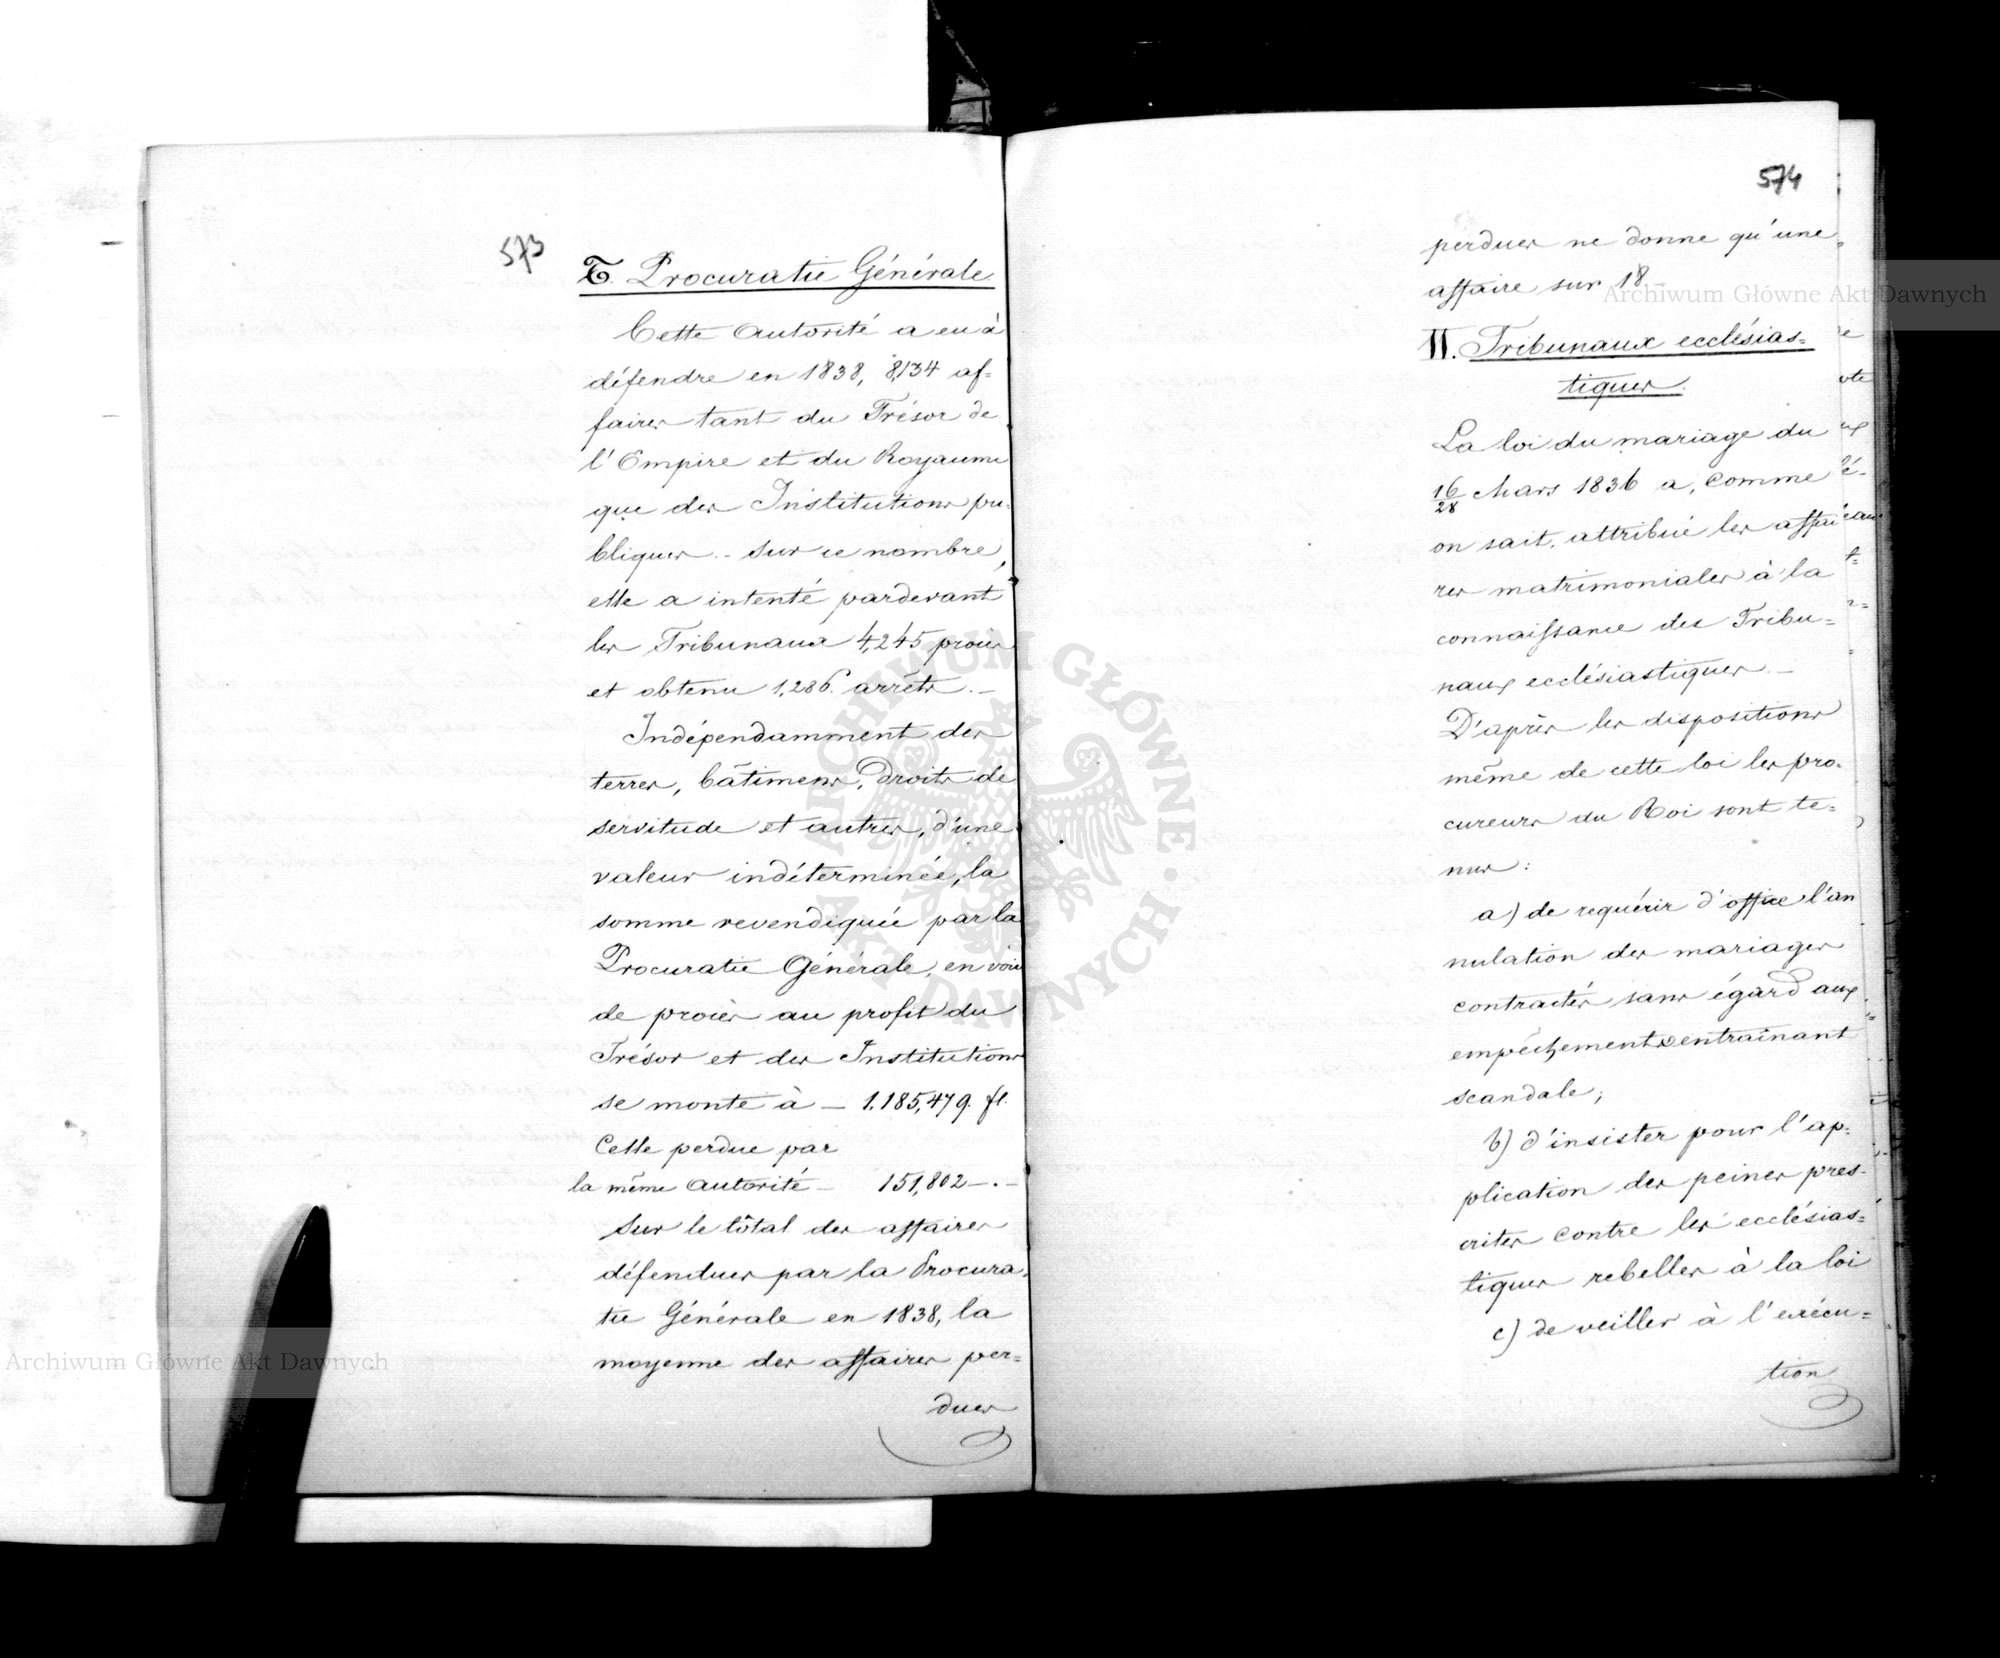 573
T. Procuratie Générale
Cette Autorité a eu à
défendre en 1838, 8,134 af-
faires tant du Trésor de
l'Empire et du Royaume
que des Institutions pu-
bliques. - Sur ce nombre,
elle a intenté pardevant
les Tribunaux 4,245 procès
et obtenu 1,286. arrêts. -
Indépendamment des
terres, bâtimens, droits de
servitude et autres, d'une
valeur indéterminée, la
somme revendiquée par la
Procuratie Générale, en voie
de procès au profit du
Trésor et des Institutions
se monte à - 1.185,479. fl.
Celle perdue par
la même Autorité - 151,802 -. -
Sur le tôtal des affaires
défendues par la Procura-
tie Générale en 1838, la
moyenne des affaires per=
dues
574
perdues ne donne qu'une
affaire sur 18
II. Tribunaux ecclésias=
tiques.
La loi du mariage du
16/28 Mars 1836 a, comme
on sait, attribué les affai
res matrimoniales à la
connaissance des Tribu=
naux ecclésiastiques. -
D'après les dispositions
même de cette loi les pro-
cureurs du Roi sont te=
nus:
a) de requérir d'office l'an
nulation des mariages
contractés sans égard aux
empêchements entraînant
scandale;
b) d'insister pour l'ap-
plication des peines pres-
crites contre les ecclésias=
tiques rebelles à la loi
c) de veiller à l'exécu=
tion
Archiwum Główne Akt Dawnych
Archiwum Główne Akt Dawnych
ARCHIWUM GŁÓWNE AKT DAWNYCH